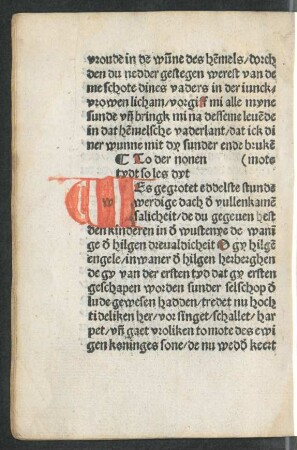 vroude in dē wūne des hēmels/dorch
den du nedder gestegen werest van de
me schote dines vaders in der iunck⸗
vrowen licham/vorgiff mi alle myne
sunde vñ bringk mi na desseme leuēde
in dat hēmelsche vaderlant/dat ick di
ner wunne mit dy sunder ende brukē
¶ To der nonen (mots
tydt so les dyt
WEs gegrotet eddelste stunde
w werdige dach d' vullenkamē
salicheit/de du geuenen hest
den kinderen in d' wustenye de wanī
ge d' hilgen dreualdicheit O gy hilgē
engele/inwaner d' hilgen herberghen
de gy van der ersten tyd dat gy ersten
geschapen worden sunder selschop d'
lude gewesen hadden/tredet nu hoch
tideliken her/vor singet/schallet/har
pet/vñ gaet vroliken to mote des ewi
gen koninges sone/de nu wedd' keert